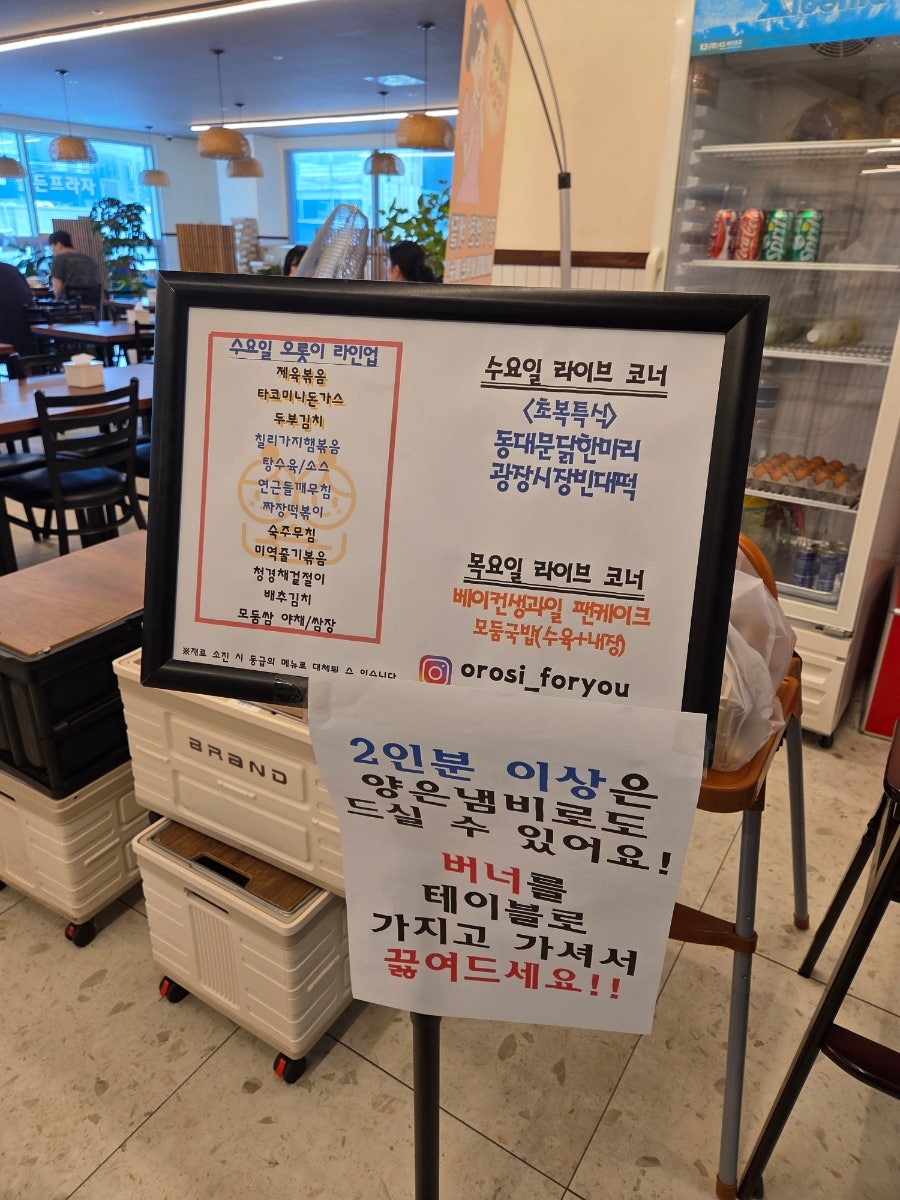 돈프라자
수요일 오롯이 라인업
제육볶음
타코미니돈가스
두부김치
칠리가지햄볶음
탕수육/소스
연근들깨무침
짜장떡볶이
숙주무침
미역줄기볶음
청경채겉절이
배추김치
모둠쌈 야채/쌈장
※재료 소진 시 동급의 메뉴로 대체될 수 있습니다
수요일 라이브 코너
<초복특식>
동대문닭한마리
광장시장빈대떡
목요일 라이브 코너
베이컨생과일 팬케이크
모듬국밥(수육+내장)
orosi_foryou
BRAND
2인분 이상은
양은냄비로도
드실 수 있어요!
버너를
테이블로
가지고 가셔서
끓여드세요!!